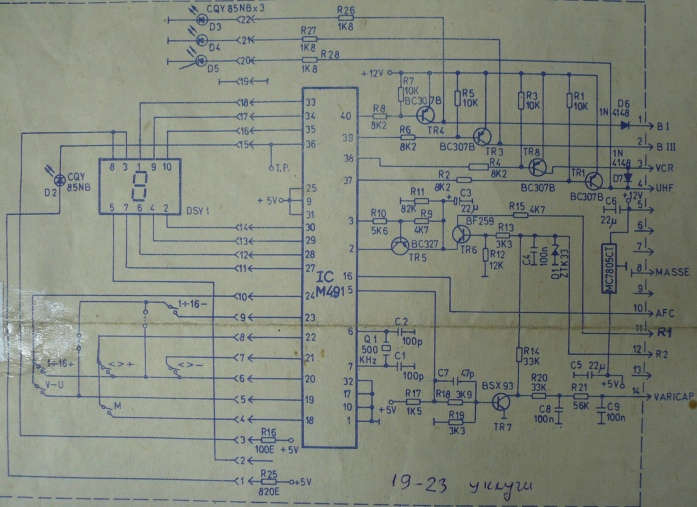 CQY 85NB x 3
D3
D4
D5
22
21
20
19
R26
1K8
R27
1K8
R28
1K8
+12V
R7
10K
BC307B
R8
8K2
TR4
R5
10K
R6
8K2
TR3
BC307B
R3
10K
TR8
R4
8K2
BC307B
R1
10K
R2
8K2
TR1
BC307B
1N 4148
D6
1N
4148
D7
+12V
1
B I
2
B III
3
VCR
4
UHF
5
6
7
8
MASSE
9
10
AFC
11
R1
12
R2
13
14
VARICAP
18
17
16
15
T.P.
33
34
35
36
40
39
38
37
25
9
31
+5V
30
29
28
27
IC
M491
3
2
16
5
24
23
22
21
20
19
18
6
7
32
17
10
1
8 3 1 9 10
5 7 6 4 2
DSY1
CQY
85NB
D2
14
13
12
11
10
9
8
7
6
5
4
3
2
1
1÷16-
1÷16+
V-U
<>+
<>-
M
R16
100E
+5V
R25
820E
+5V
R11
82K
C3
22µ
R10
5K6
R9
4K7
BC327
TR5
BF259
TR6
R15
4K7
R13
3K3
R12
12K
C4
100n
D1
ZTK33
C6
22µ
MC7805CT
C2
100p
Q1
500
KHz
C1
100p
R14
33K
C5
22µ
+5V
C7
47p
+5V
R17
1K5
R18
3K9
R19
3K3
BSX93
TR7
R20
33K
R21
56K
C8
100n
C9
100n
19-23 уклучи